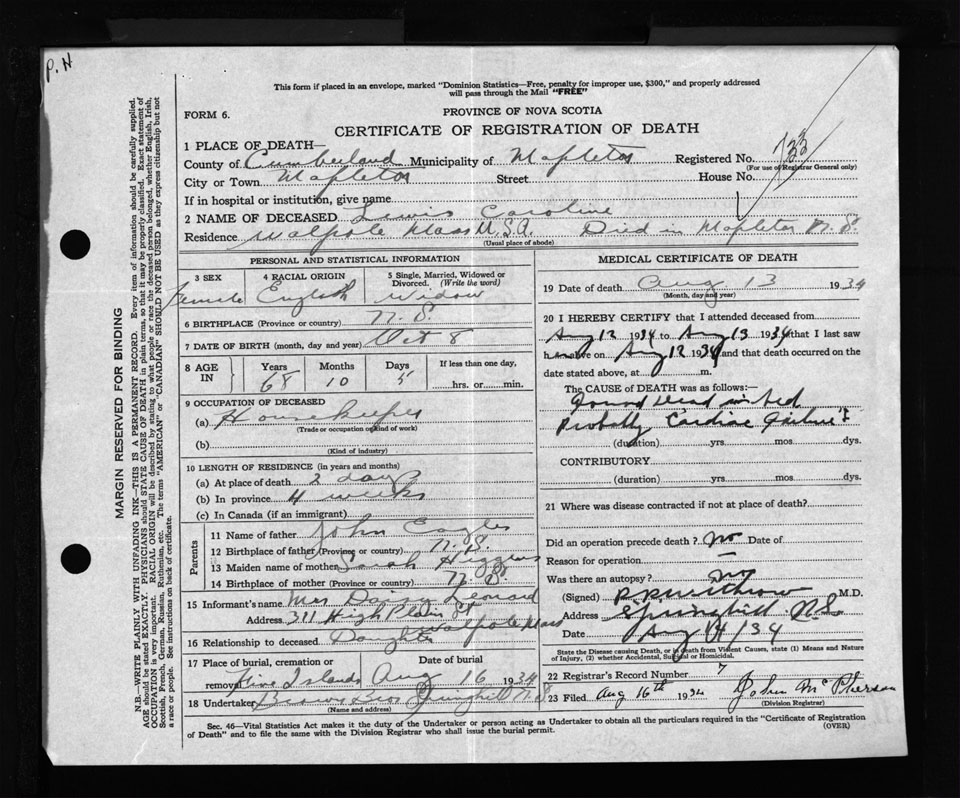 P. H
This form if placed in an envelope, marked "Dominion Statistics—Free, penalty for improper use, $300," and properly addressed
will pass through the Mail "FREE"
FORM 6.
PROVINCE OF NOVA SCOTIA
CERTIFICATE OF REGISTRATION OF DEATH
1 PLACE OF DEATH—
County of Cumberland Municipality of Mapleton Registered No. 733
(For use of Registrar General only)
City or Town Mapleton Street House No.
If in hospital or institution, give name
2 NAME OF DECEASED Lewis Caroline
Residence Walpole Mass U.S.A. Died in Mapleton N.S.
(Usual place of abode)
PERSONAL AND STATISTICAL INFORMATION
3 SEX Female
4 RACIAL ORIGIN English
5 Single, Married, Widowed or Divorced. (Write the word) Widow
6 BIRTHPLACE (Province or country) N.S.
7 DATE OF BIRTH (month, day and year) Oct 8
8 AGE IN Years 68 Months 10 Days 5 If less than one day, hrs. or min.
9 OCCUPATION OF DECEASED
(a) Housekeeper
(Trade or occupation or kind of work)
(b)
(Kind of industry)
10 LENGTH OF RESIDENCE (in years and months)
(a) At place of death 2 days
(b) In province 4 weeks
(c) In Canada (if an immigrant)
Parents
11 Name of father John Eagles
12 Birthplace of father (Province or country) N.S.
13 Maiden name of mother Sarah Higgins
14 Birthplace of mother (Province or country) N.S.
15 Informant's name Mrs Daisy Leonard
Address 311 High Plain St Walpole Mass
16 Relationship to deceased Daughter
17 Place of burial, cremation or removal Five Islands Date of burial Aug 16 1934
18 Undertaker Brown Bros Springhill N.S.
(Name and address)
MEDICAL CERTIFICATE OF DEATH
19 Date of death Aug 13 1934
(Month, day and year)
20 I HEREBY CERTIFY that I attended deceased from
Aug 12 1934 to Aug 13 1934 that I last saw
h alive on Aug 12 1934 and that death occurred on the
date stated above, at m.
The CAUSE OF DEATH was as follows:—
Found dead in bed
Probably Cardiac failure
(duration) yrs. mos. dys.
CONTRIBUTORY
(duration) yrs. mos. dys.
21 Where was disease contracted if not at place of death?
Did an operation precede death? No Date of
Reason for operation —
Was there an autopsy? No
(Signed) P.P. Withrow M.D.
Address Springhill N.S.
Date Aug 14/34
State the Disease causing Death, or in death from Violent Causes, state (1) Means and Nature
of Injury, (2) whether Accidental, Suicidal or Homicidal.
22 Registrar's Record Number 7
23 Filed Aug 16th 1934 John McPherson
(Division Registrar)
Sec. 46—Vital Statistics Act makes it the duty of the Undertaker or person acting as Undertaker to obtain all the particulars required in the "Certificate of Registration
of Death" and to file the same with the Division Registrar who shall issue the burial permit.
(OVER)
MARGIN RESERVED FOR BINDING
N.B.—WRITE PLAINLY WITH UNFADING INK—THIS IS A PERMANENT RECORD. Every item of information should be carefully supplied.
AGE should be stated EXACTLY. PHYSICIANS should STATE CAUSE OF DEATH in plain terms, so that it may be properly classified. Exact statement of
OCCUPATION is very important. RACIAL ORIGIN will be described by stating to what people or race the deceased person belonged, whether English, Irish,
Scottish, French, German, Russian, Ruthenian, etc. The terms "AMERICAN" or "CANADIAN" SHOULD NOT BE USED as they express citizenship but not
a race or people. See instructions on back of certificate.